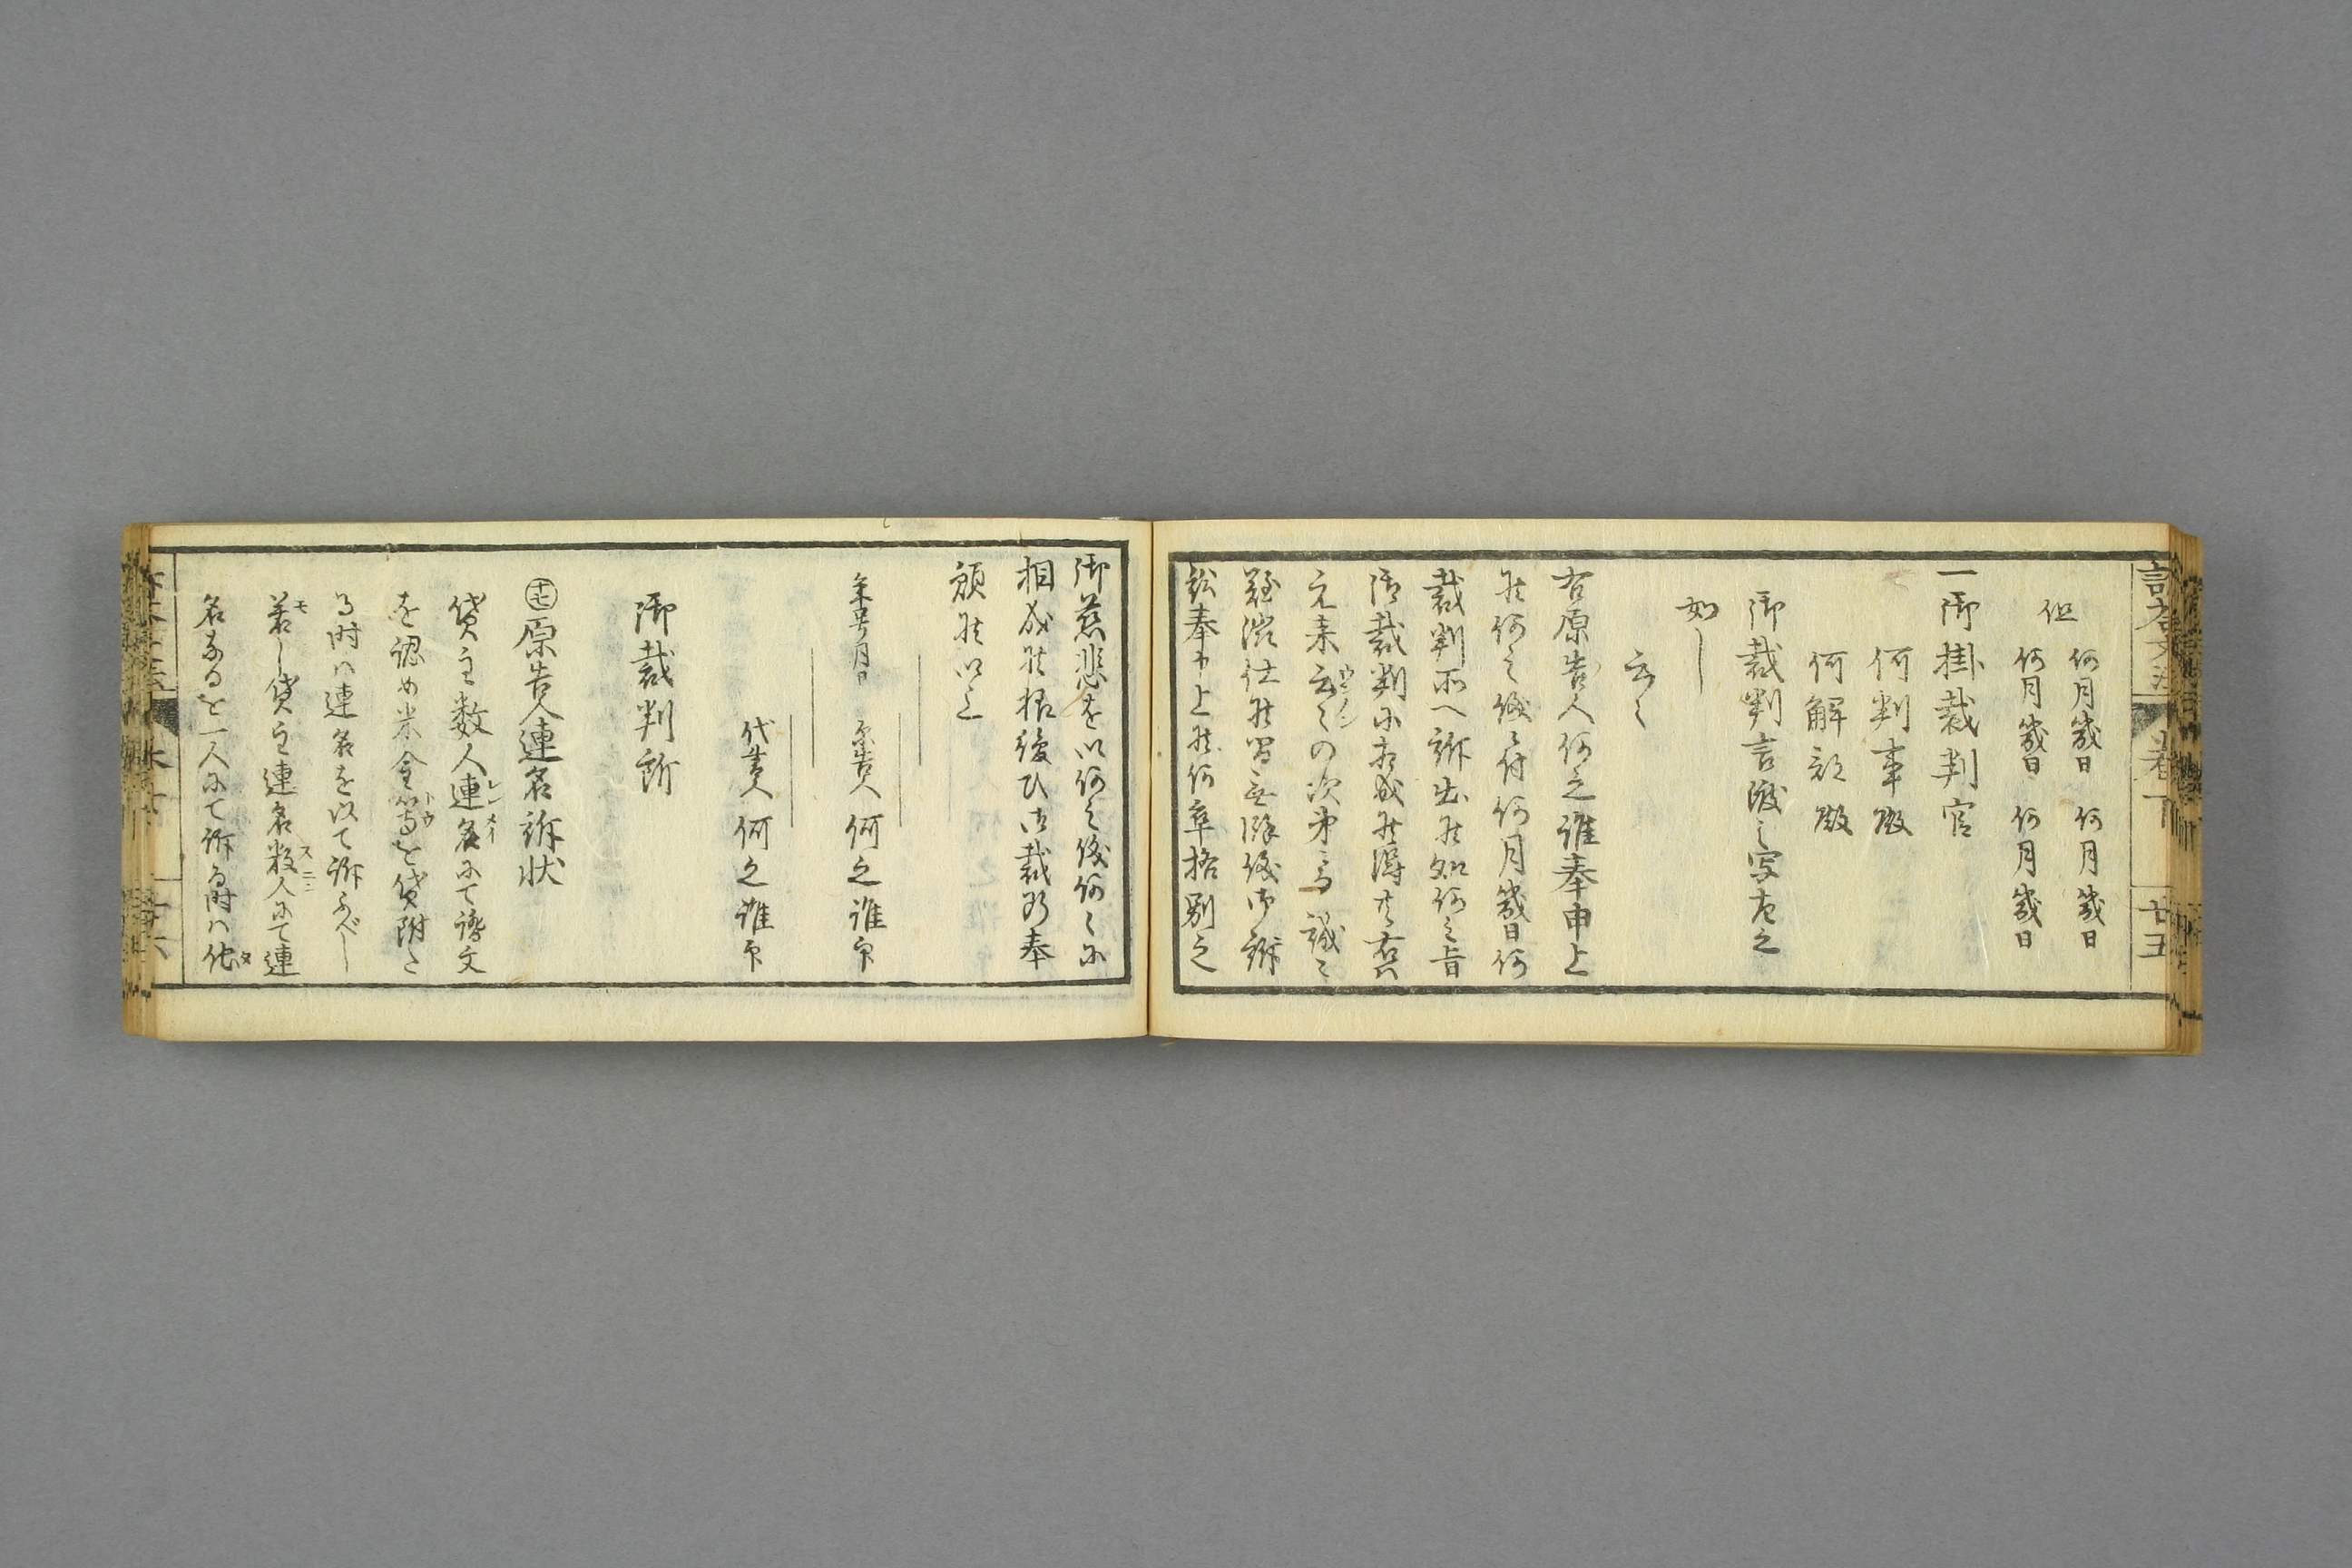 但
何月幾日 何月幾日
何月幾日 何月幾日
一御掛裁判官
何判事殿
何解部殿
御裁判言渡之写左之
如し
云々
右原告人何之誰奉申上
候何之儀ニ付何月幾日何
裁判所へ訴出候処何之旨
御裁判ニ相成候得共右ハ
元来云々の次第ニ而誠ニ
難渋仕候間無余儀御訴
訟奉申上候何卒格別之
御慈悲を以何之儀何々ニ
相成候様後ひ御裁判奉
願候以上
年号月日 原告人 何之誰印
代書人 何之誰印
御裁判所
原告人連名訴状
貸主数人連名にて證文
を認め米金等を貸附た
る時ハ連名を以て訴ふべし
若し貸主連名数人にて連
名なるを一人にて訴る時ハ他
卷下
廿五